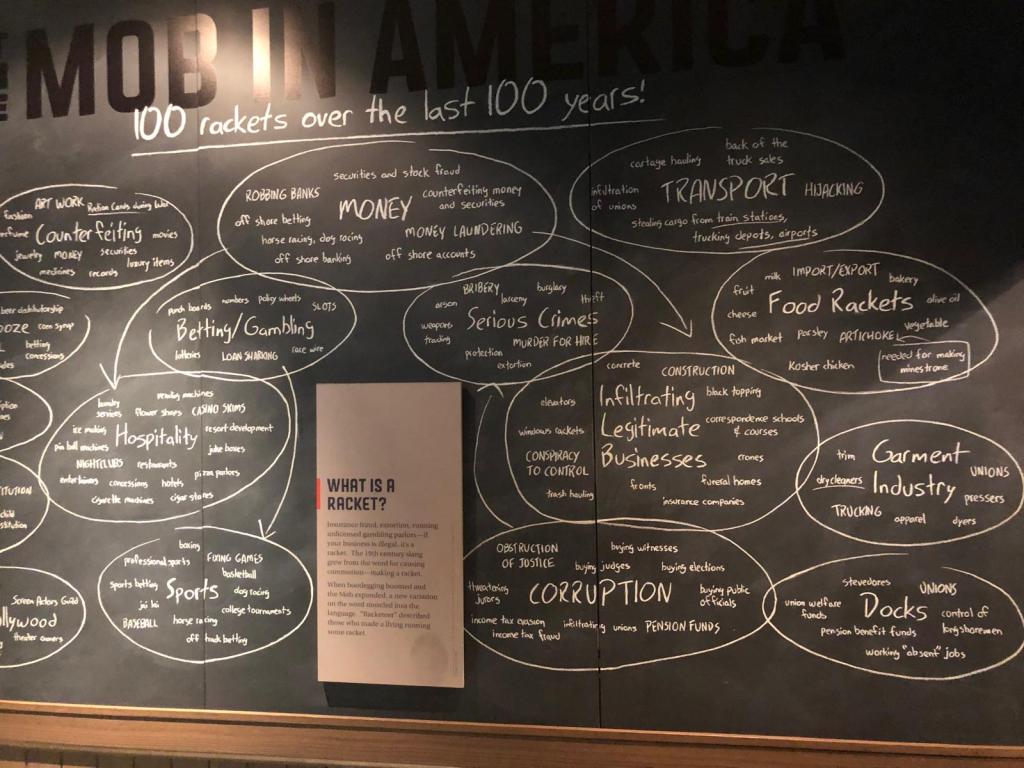 MOB IN AMERICA
100 rackets over the last 100 years!
ART WORK Ration Cards during War
Fashion
Counterfeiting movies
jewelry MONEY securities
luxury items
medicines records
securities and stock fraud
ROBBING BANKS
counterfeiting money
and securities
MONEY
off shore betting
MONEY LAUNDERING
horse racing, dog racing
off shore banking
off shore accounts
back of the
truck sales
cartage hauling
infiltration
of unions
TRANSPORT HIJACKING
stealing cargo from train stations,
trucking depots, airports
corn syrup
betting
concessions
punch boards numbers policy wheels SLOTS
Betting/Gambling
lotteries LOAN SHARKING race wire
BRIBERY burglary
arson larceny theft
weapons
trading
Serious Crimes
MURDER FOR HIRE
protection
extortion
milk IMPORT/EXPORT bakery
fruit
Food Rackets olive oil
cheese
fish market parsley ARTICHOKE vegetable
Kosher chicken
needed for making
minestrone
laundry
services
vending machines
flower shops CASINO SKIMS
ice making
Hospitality resort development
pin ball machines juke boxes
NIGHTCLUBS restaurants
pizza parlors
entertainers concessions hotels
cigarette machines cigar stores
concrete CONSTRUCTION
elevators Infiltrating black topping
windows rackets Legitimate correspondence schools
& courses
CONSPIRACY
TO CONTROL
Businesses cranes
fronts funeral homes
trash hauling
insurance companies
trim Garment
dry cleaners Industry UNIONS
pressers
TRUCKING apparel dyers
WHAT IS A
RACKET?
Insurance fraud, extortion, running
unlicensed gambling parlors—if
your business is illegal, it's a
racket. The 19th century slang
grew from the word for causing
commotion—making a racket.
When bootlegging boomed and
the Mob expanded, a new variation
on the word muscled into the
language. "Racketeer" described
those who made a living running
some racket.
boxing
professional sports FIXING GAMES
basketball
sports betting Sports dog racing
jai lai
college tournaments
BASEBALL horse racing
off track betting
Screen Actors Guild
theater owners
OBSTRUCTION
OF JUSTICE
buying witnesses
buying judges buying elections
threatening
jurors
CORRUPTION buying public
officials
income tax evasion
infiltrating unions PENSION FUNDS
income tax fraud
stevedores UNIONS
union welfare
funds
Docks control of
longshoremen
pension benefit funds
working "absent" jobs